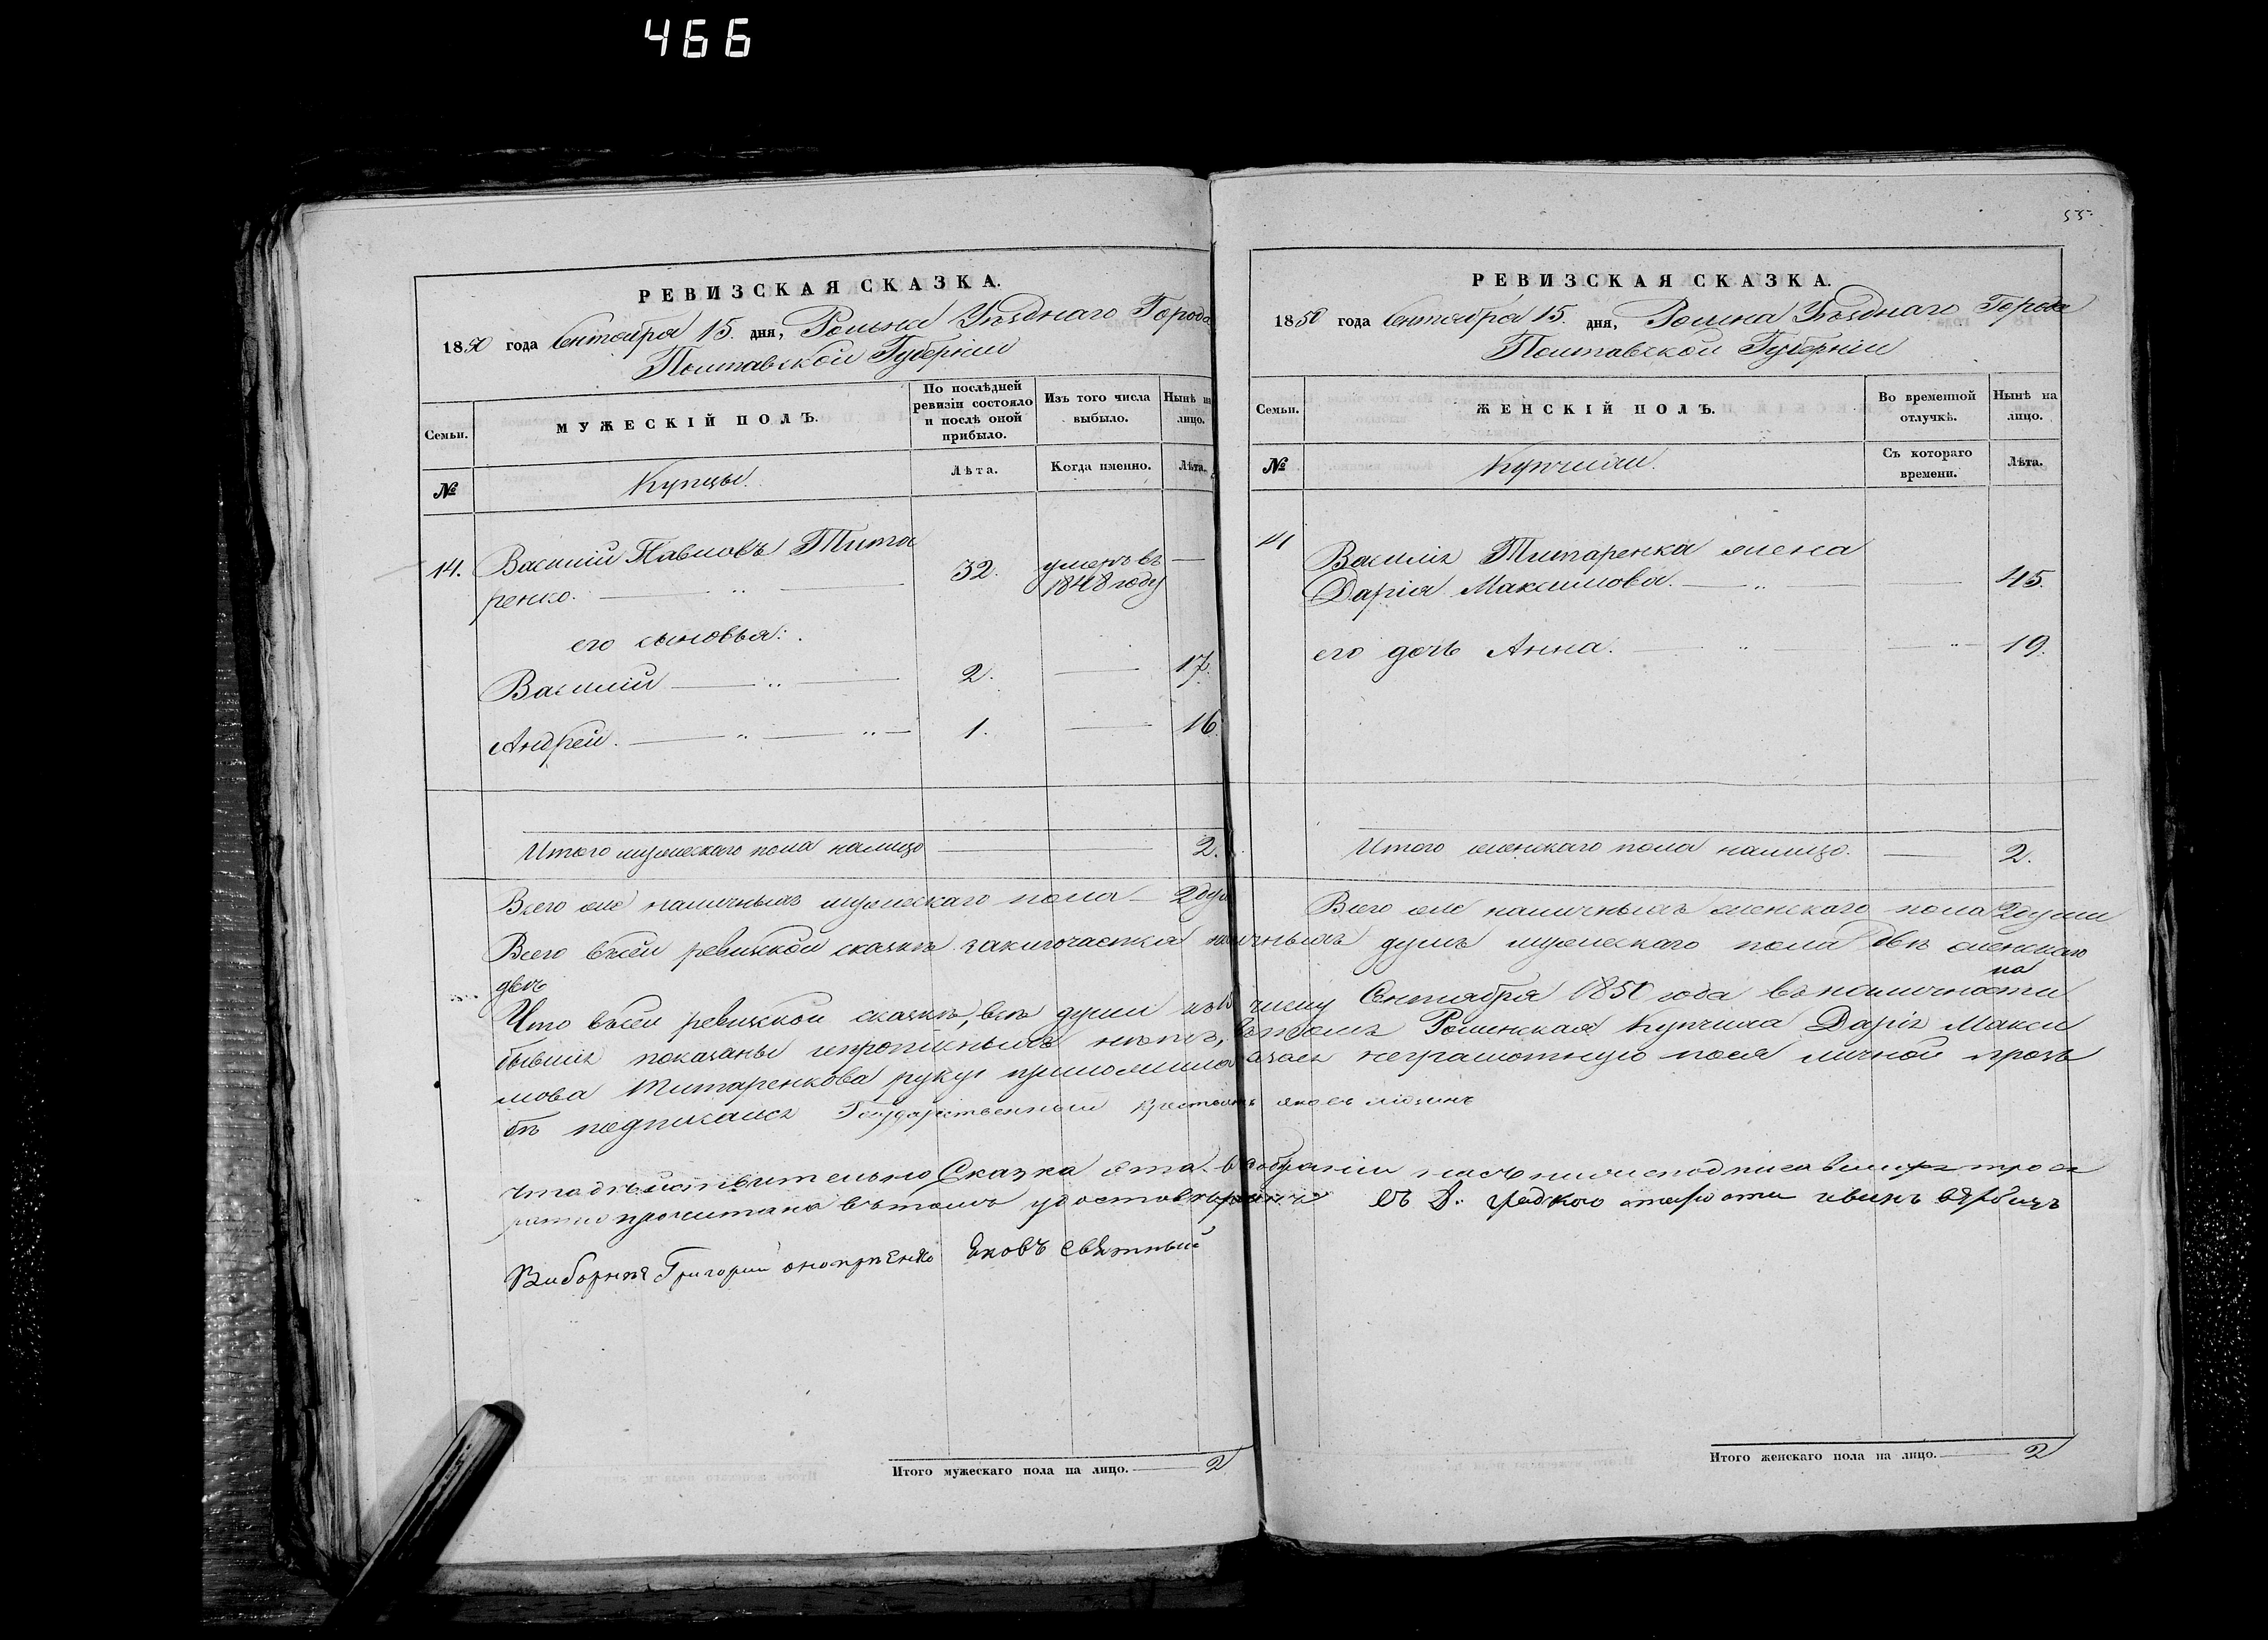 466
РЕВИЗСКАЯ СКАЗКА.
1850 года Сентября 15. дня, Ромна Уѣзднаго Города
Полтавской Губерніи
Семьи.
МУЖЕСКІЙ ПОЛЪ.
По послѣдней ревизіи состояло и послѣ оной прибыло.
Изъ того числа выбыло.
Нынѣ на лицо.
№
Купцы.
Лѣта.
Когда именно.
Лѣта.
14. Василій Павловъ Тита
ренко. 32. умеръ въ 1848 году
его сыновья:
Василій 2. 17.
Андрей. 1. 16.
Итого мужескаго пола налицо 2.
Всего же наличныхъ мужескаго пола 2 душ
Итого мужескаго пола на лицо. 2
55.
РЕВИЗСКАЯ СКАЗКА.
1850 года Сентября 15. дня, Ромна Уѣзднаго Города
Полтавской Губерніи
Семьи.
ЖЕНСКІЙ ПОЛЪ.
Во временной отлучкѣ.
Нынѣ на лицо.
№
Купчихи.
Съ котораго времени.
Лѣта.
14 Василія Титаренка жена
Дарія Максимова. 45.
его дочь Анна. 19.
Итого женскаго пола налицо. 2.
Всего же наличныхъ женскаго пола 2 души
Всего въсей ревизкой сказкѣ заключается наличныхъ душъ мужескаго пола двѣ женскаго
двѣ
Что въсей ревизкой сказкѣ, всѣ души къ числу Сентября 1850 года въ наличности
бывшія показаны ипрописныхъ нѣтъ, въ томъ Роменская Купчиха Дарія Макси
мова Титаренкова руку приложила азаея неграмотную поея личной прозь
бѣ подписался Государственный крестьянъ
что дѣйствительно Сказка эта въ собраніи
прочитана въ томъ удостовѣряемъ
Виборния Григорий оноприенко Яковъ Святный
Итого женскаго пола на лицо. 2